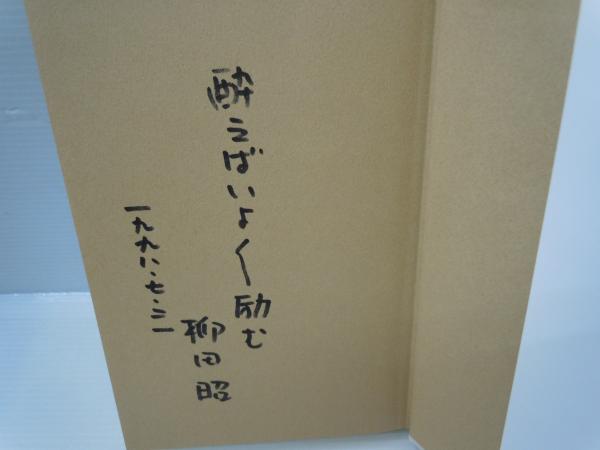 酔えばいよく励む
柳田昭
一九九八・七・三一